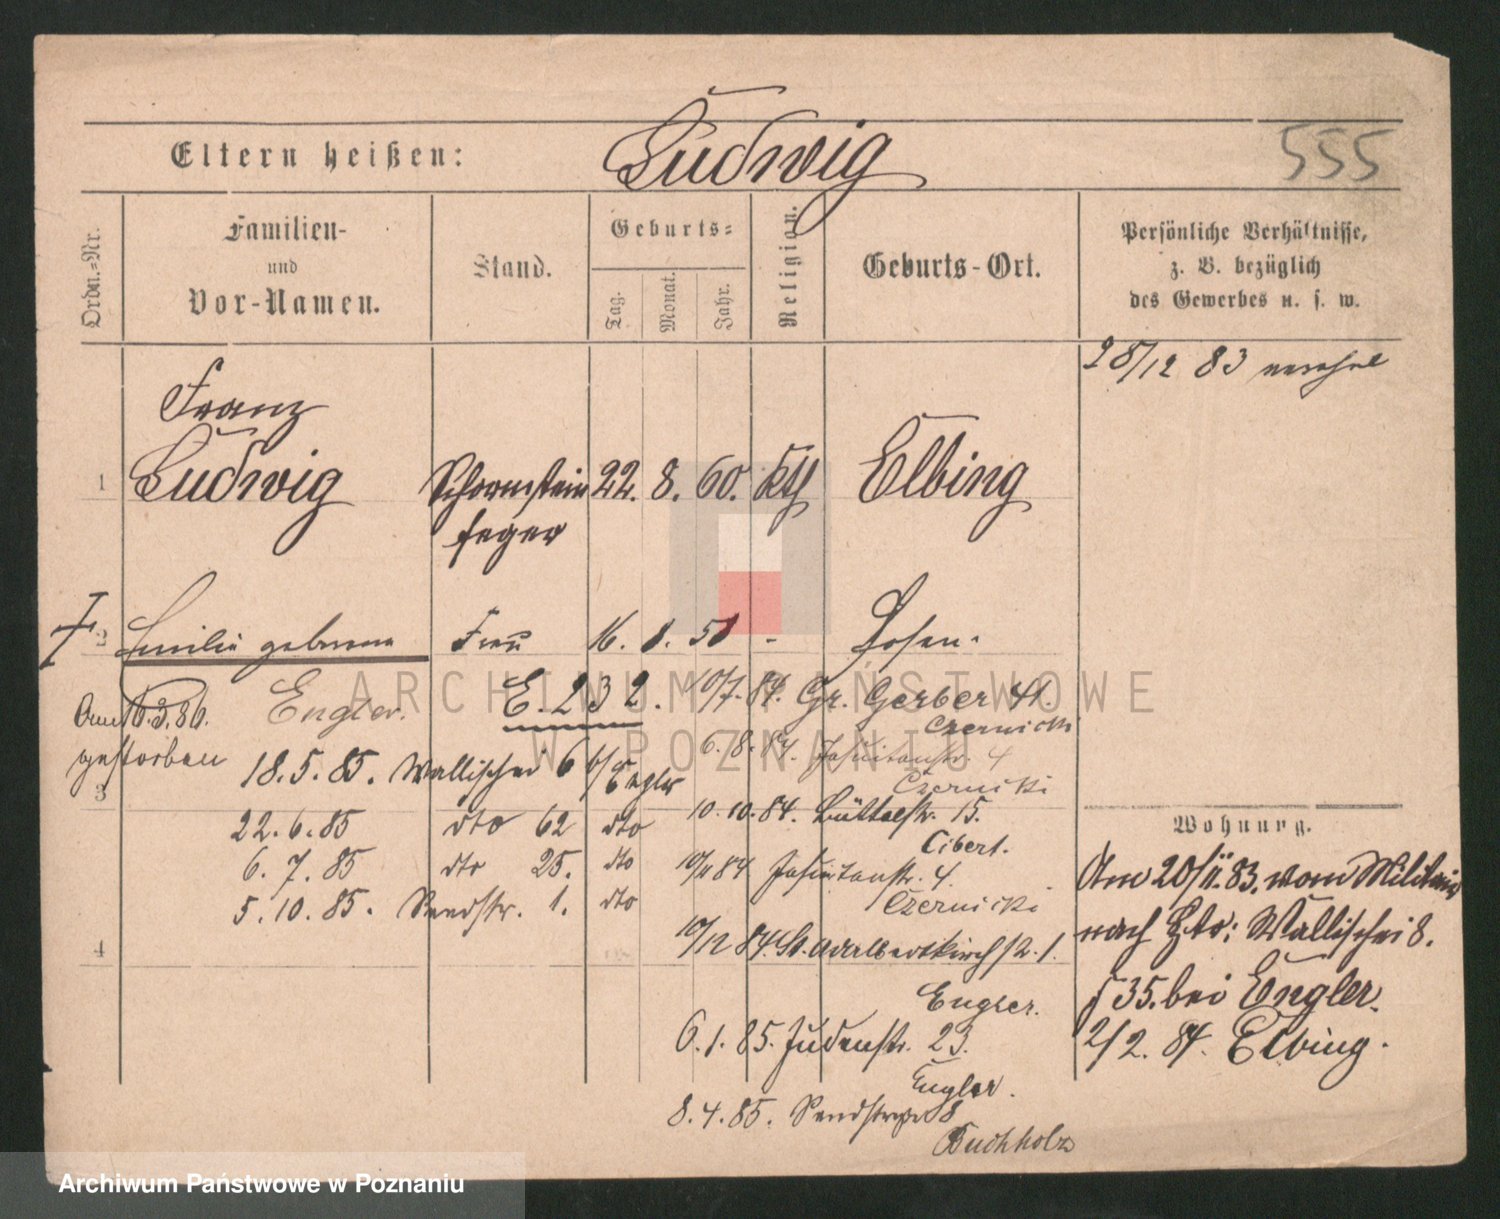 555
Eltern heißen: Ludwig
Ordn.=Nr.
Familien- und Vor-Namen.
Stand.
Geburts=
Tag.
Monat.
Jahr.
Religion.
Geburts-Ort.
Persönliche Verhältnisse,
z. B. bezüglich
des Gewerbes u. s. w.
28/12 83
1
Franz
Ludwig Schornstein 22. 8. 60. Kth Elbing
feger
2 Emilie geborene Frau 16. 8. Posen.
Engler. E. 232. 10/7. 84. Gr. Gerber 41.
Czernicki
Am 10.3.86.
gestorben
6. 8. 84. Jesuitenstr. 4
Czernicki
18. 5. 85. Wallischei 6 b/ Engler
3
10. 10. 84. Büttelstr. 15.
Cibert.
22. 6. 85 dto 62 dto
6. 7. 85 dto 25. dto
10/11 84 Jesuitenstr. 4.
Czernicki
5. 10. 85. Sandstr. 1. dto
4
10/12 84. St. Adalbertkirchstr. 1.
Engler.
6. 1. 85. Judenstr. 23.
Engler.
8. 4. 85. Sandstrasse 8
Buchholz
Wohnung.
Am 20/11. 83. vom Militair
nach hier: Wallischei 8.
35. bei Engler.
2/2. 84. Elbing.
ARCHIWUM PAŃSTWOWE
W POZNANIU
Archiwum Państwowe w Poznaniu